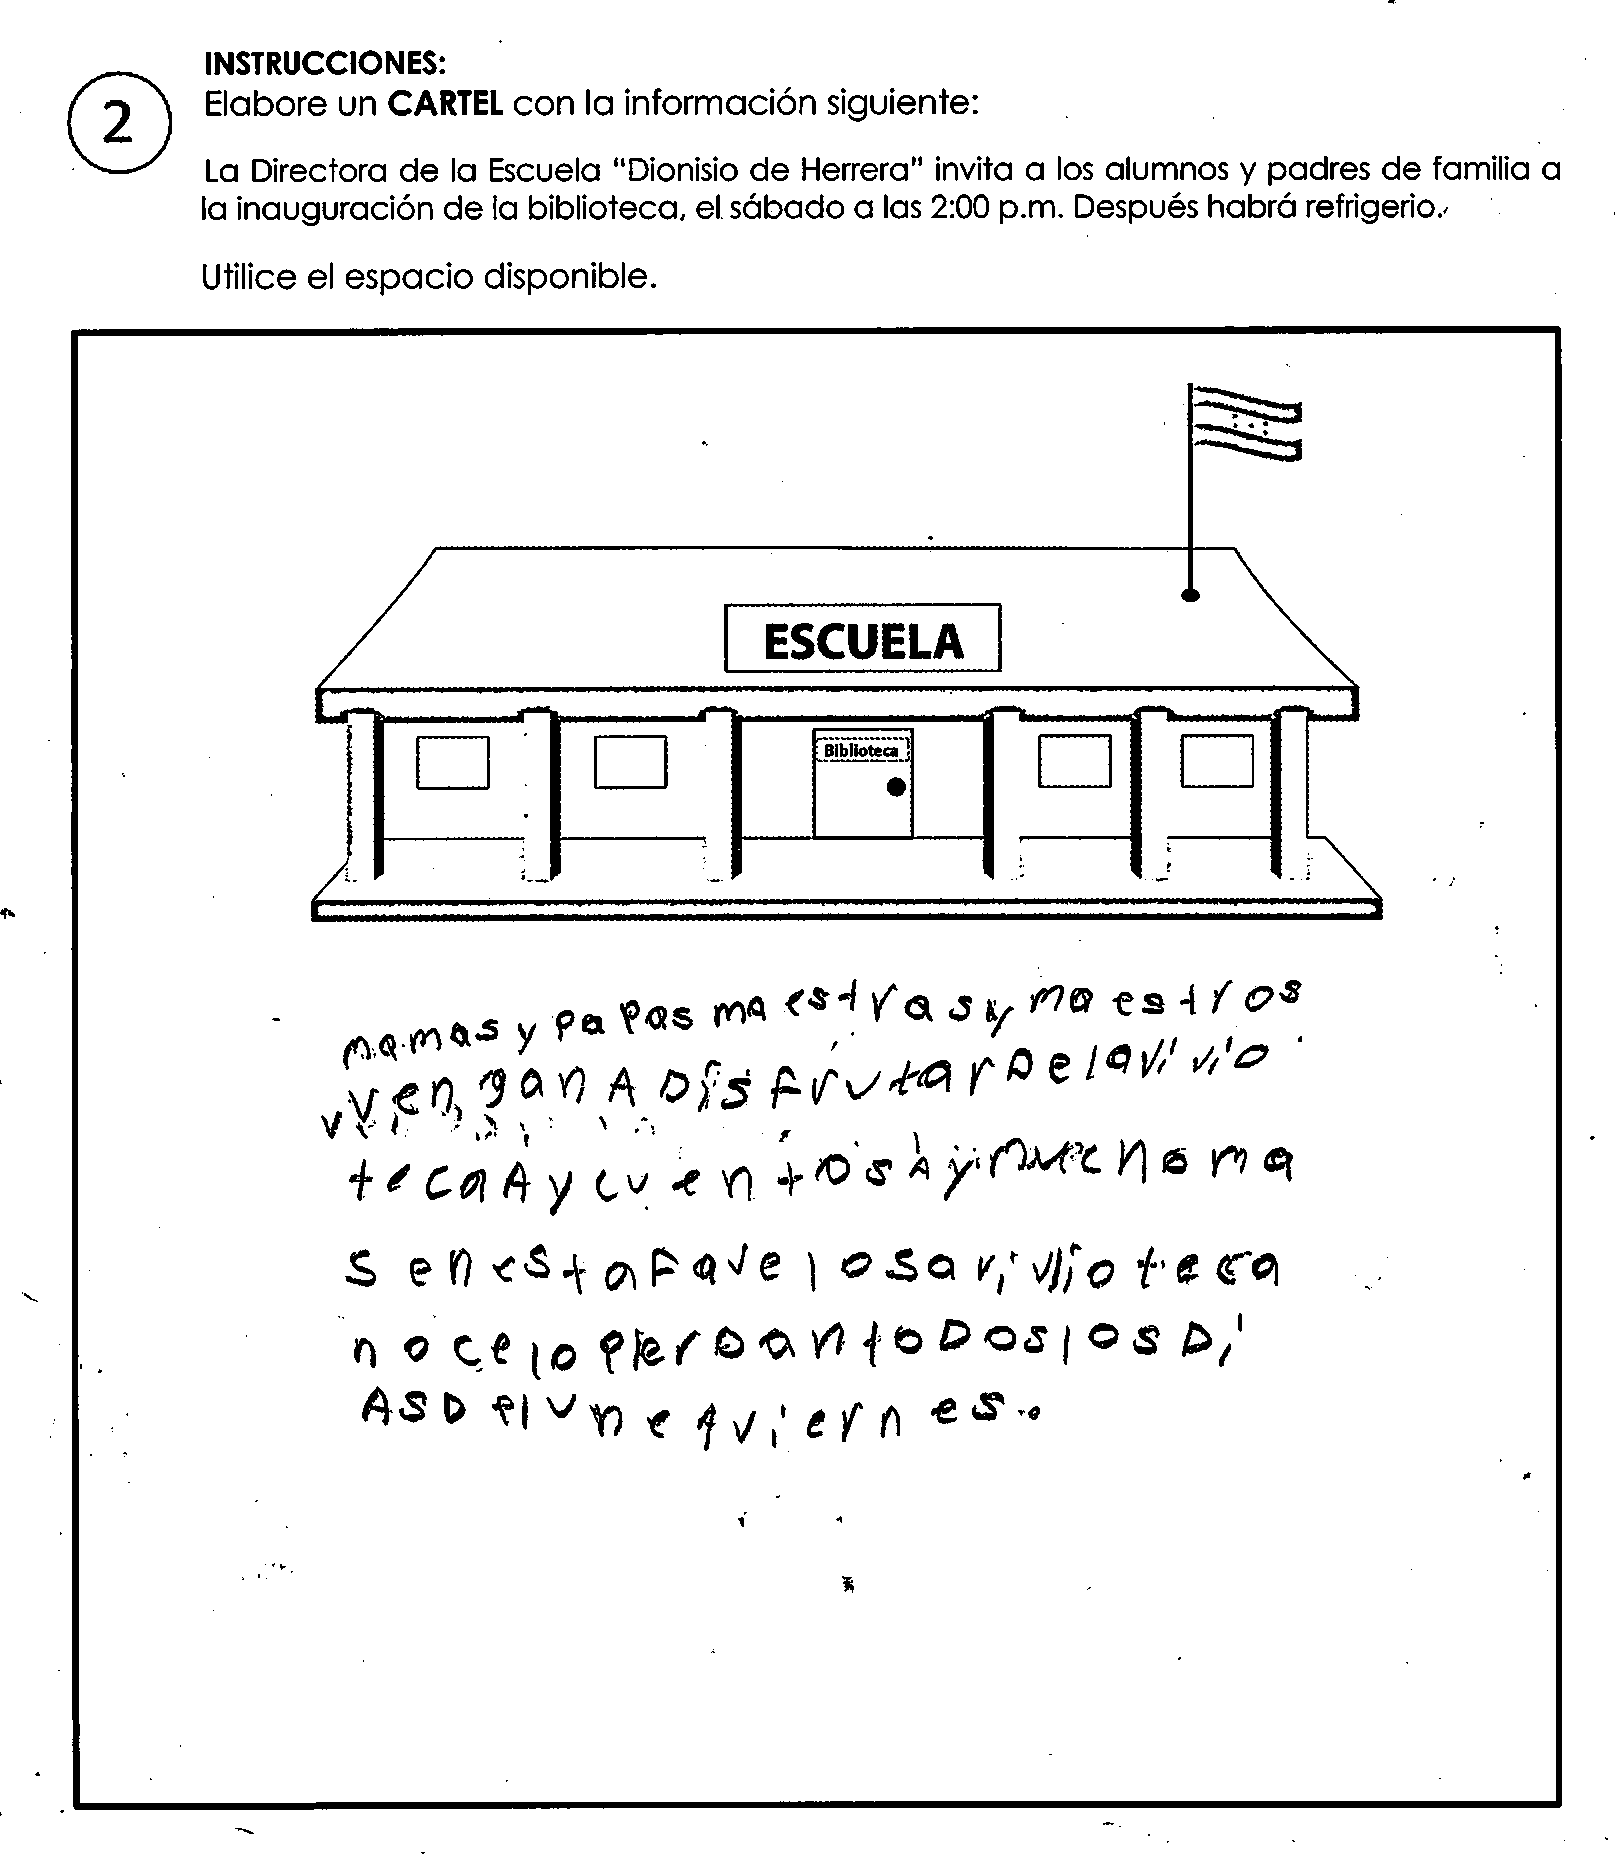 INSTRUCCIONES:
2
Elabore un CARTEL con la información siguiente:
La Directora de la Escuela "Dionisio de Herrera" invita a los alumnos y padres de familia a
la inauguración de la biblioteca, el sábado a las 2:00 p.m. Después habrá refrigerio.
Utilice el espacio disponible.
ESCUELA
Biblioteca
mamas y papas maestras y maestros
vengan A Disfrutar De la vivio
teca Ay cuentos Ay mucho ma
s en esta favelosa vivlioteca
no ce lo pierdan toDos los Di
AS De lune A viernes.